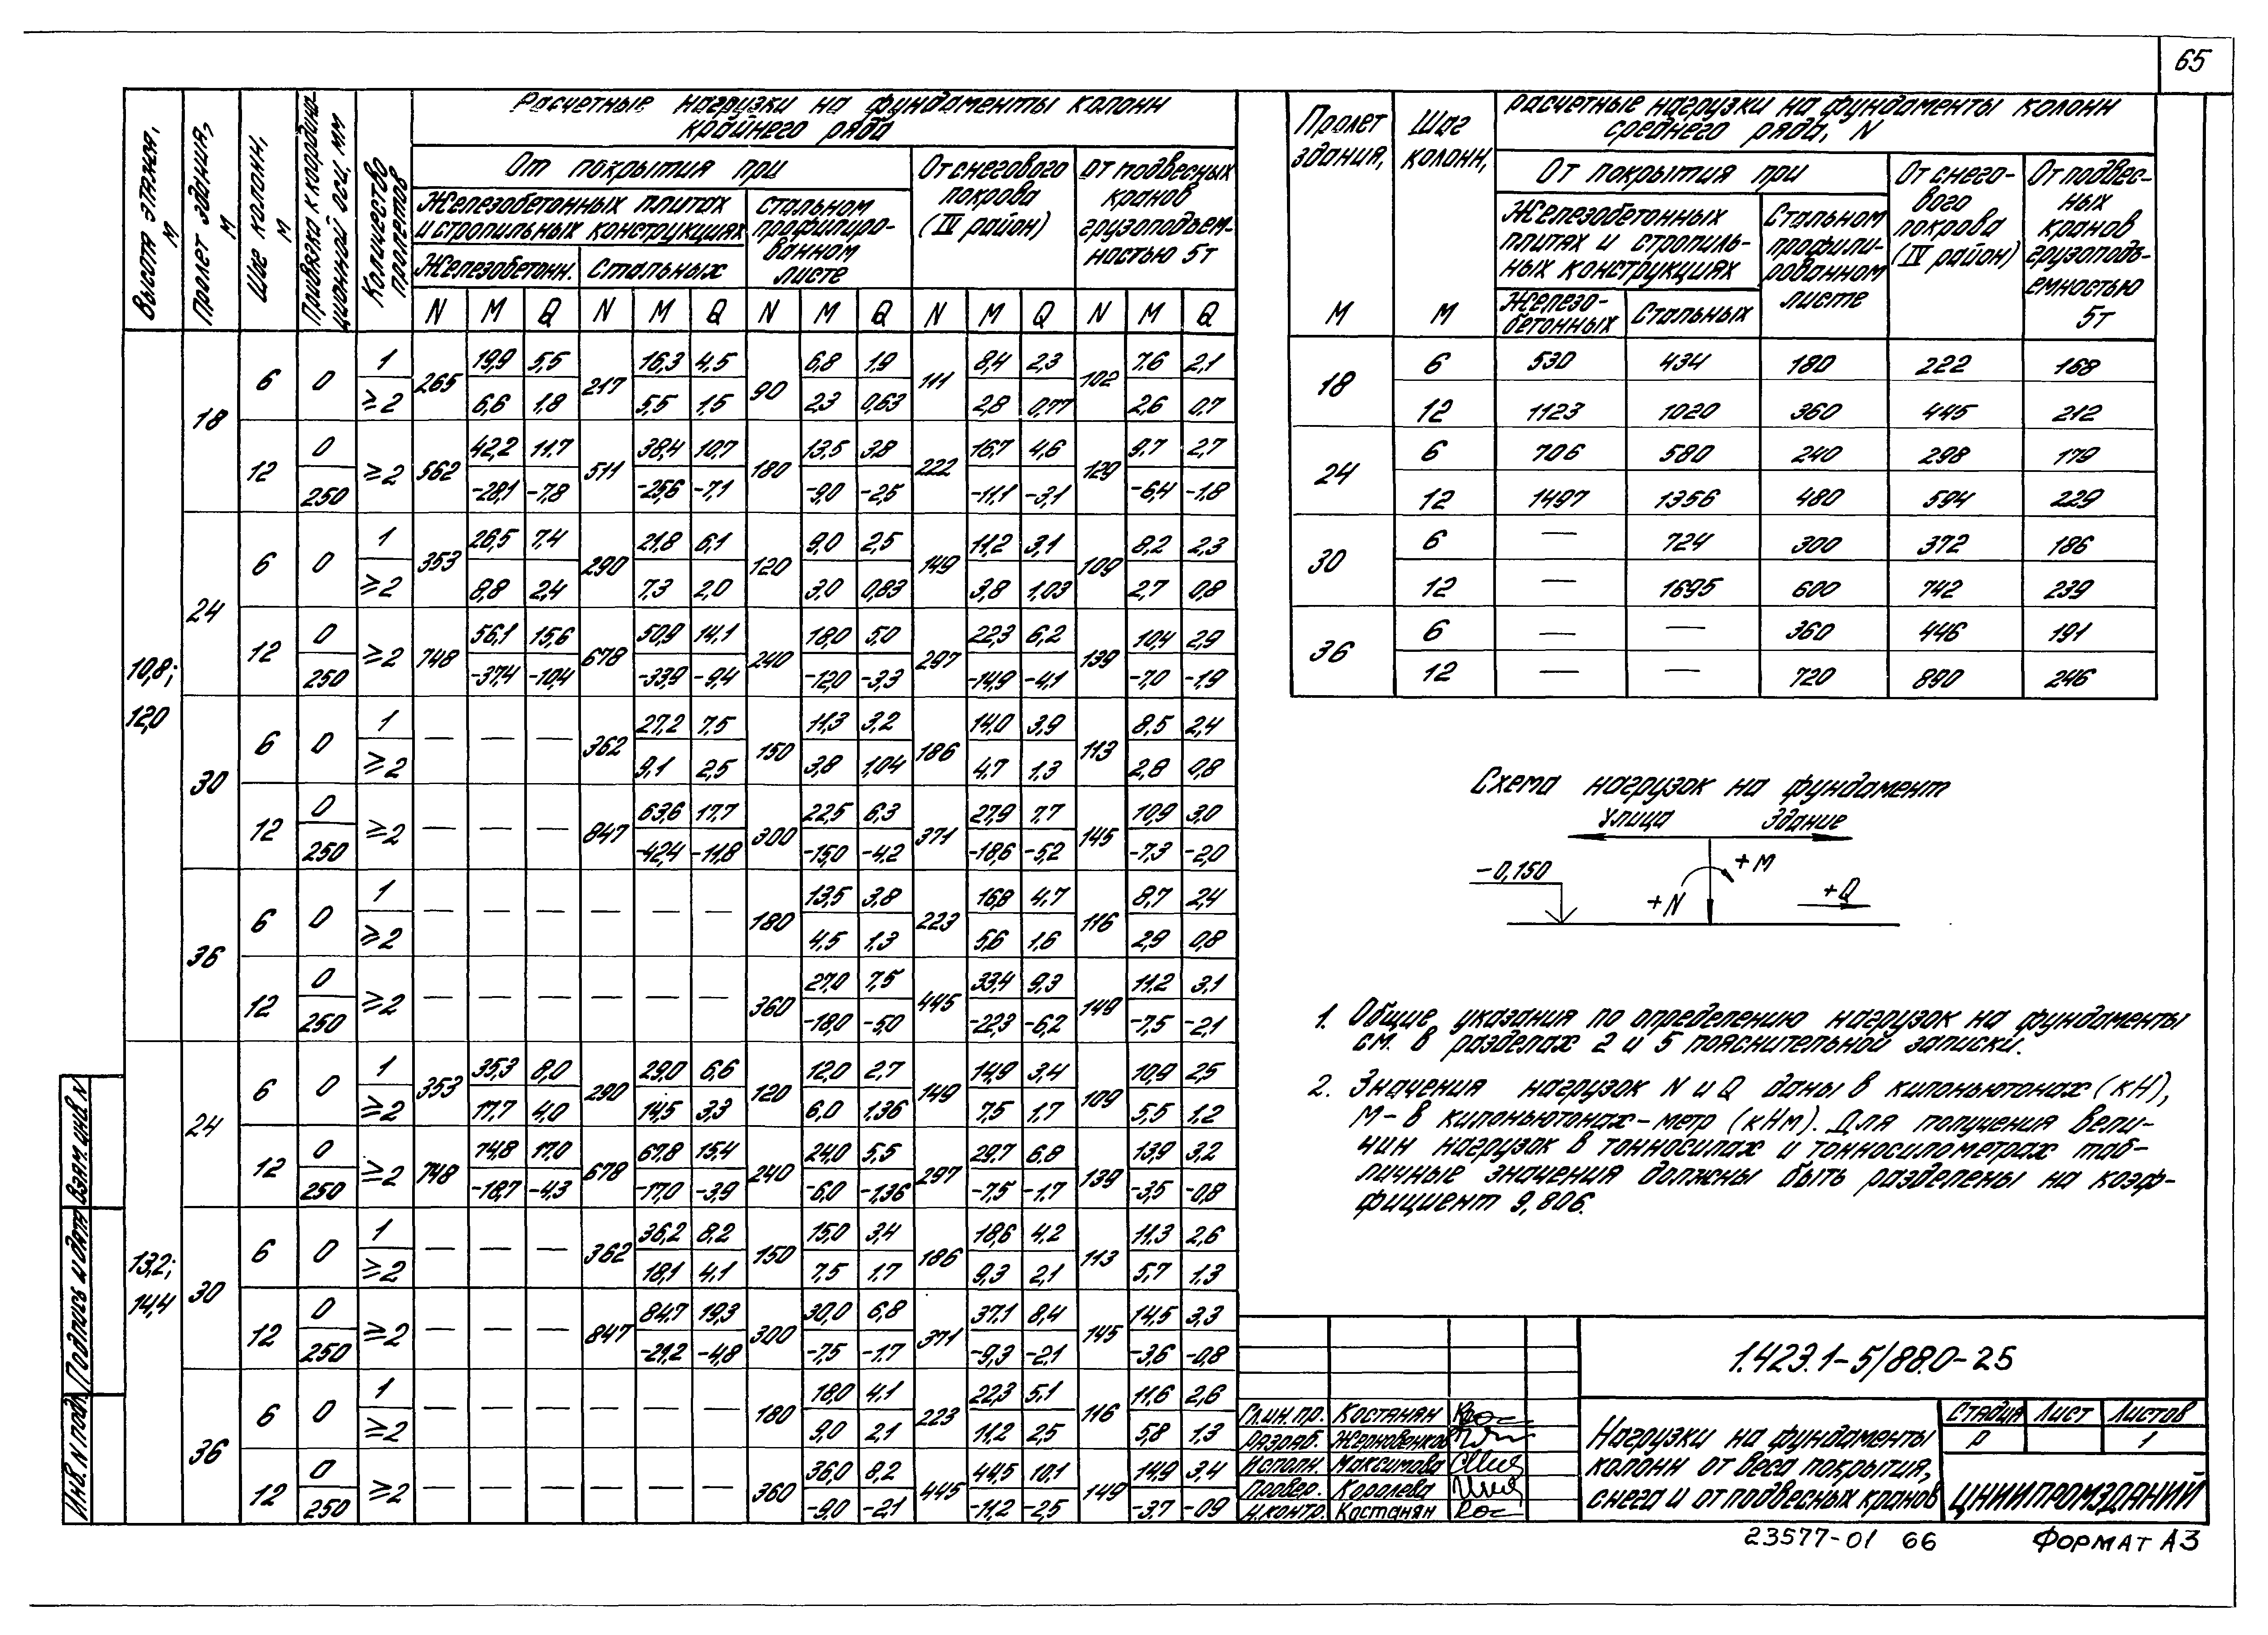 65
Высота этажа, м
Пролет здания, м
Шаг колонн, м
Привязка к координационной оси, мм
Количество пролетов
Расчетные нагрузки на фундаменты колонн
крайнего ряда
От покрытия при
От снегового покрова (IV район)
От подвесных кранов грузоподъемностью 5т
Железобетонных плитах и стропильных конструкциях
Стальном профилированном листе
Железобетонн. Стальных
N M Q N M Q N M Q N M Q N M Q
10,8; 12,0
18
6 0 1 265 19,9 5,5 217 16,3 4,5 90 6,8 1,9 111 8,4 2,3 102 7,6 2,1
≥2 6,6 1,8 5,5 1,5 2,3 0,63 2,8 0,77 2,6 0,7
12 0 ≥2 562 42,2 11,7 511 38,4 10,7 180 13,5 3,8 222 16,7 4,6 129 9,7 2,7
250 -28,1 -7,8 -25,6 -7,1 -9,0 -2,5 -11,1 -3,1 -6,4 -1,8
24
6 0 1 353 26,5 7,4 290 21,8 6,1 120 9,0 2,5 149 11,2 3,1 109 8,2 2,3
≥2 8,8 2,4 7,3 2,0 3,0 0,83 3,8 1,03 2,7 0,8
12 0 ≥2 748 56,1 15,6 678 50,9 14,1 240 18,0 5,0 297 22,3 6,2 139 10,4 2,9
250 -37,4 -10,4 -33,9 -9,4 -12,0 -3,3 -14,9 -4,1 -7,0 -1,9
30
6 0 1 — — — 362 27,2 7,5 150 11,3 3,2 186 14,0 3,9 113 8,5 2,4
≥2 9,1 2,5 3,8 1,04 4,7 1,3 2,8 0,8
12 0 ≥2 — — — 847 63,6 17,7 300 22,5 6,3 371 27,9 7,7 145 10,9 3,0
250 -42,4 -11,8 -15,0 -4,2 -18,6 -5,2 -7,3 -2,0
36
6 0 1 — — — — — — 180 13,5 3,8 223 16,8 4,7 116 8,7 2,4
≥2 4,5 1,3 5,6 1,6 2,9 0,8
12 0 ≥2 — — — — — — 360 27,0 7,5 445 33,4 9,3 149 11,2 3,1
250 -18,0 -5,0 -22,3 -6,2 -7,5 -2,1
13,2; 14,4
24
6 0 1 353 35,3 8,0 290 29,0 6,6 120 12,0 2,7 149 14,9 3,4 109 10,9 2,5
≥2 17,7 4,0 14,5 3,3 6,0 1,36 7,5 1,7 5,5 1,2
12 0 ≥2 748 74,8 17,0 678 67,8 15,4 240 24,0 5,5 297 29,7 6,8 139 13,9 3,2
250 -18,7 -4,3 -17,0 -3,9 -6,0 -1,36 -7,5 -1,7 -3,5 -0,8
30
6 0 1 — — — 362 36,2 8,2 150 15,0 3,4 186 18,6 4,2 113 11,3 2,6
≥2 18,1 4,1 7,5 1,7 9,3 2,1 5,7 1,3
12 0 ≥2 — — — 847 84,7 19,3 300 30,0 6,8 371 37,1 8,4 145 14,5 3,3
250 -21,2 -4,8 -7,5 -1,7 -9,3 -2,1 -3,6 -0,8
36
6 0 1 — — — — — — 180 18,0 4,1 223 22,3 5,1 116 11,6 2,6
≥2 9,0 2,1 11,2 2,5 5,8 1,3
12 0 ≥2 — — — — — — 360 36,0 8,2 445 44,5 10,1 149 14,9 3,4
250 -9,0 -2,1 -11,2 -2,5 -3,7 -09
Пролет здания, м
Шаг колонн, м
Расчетные нагрузки на фундаменты колонн
среднего ряда, N
От покрытия при
От снегового покрова (IV район)
От подвесных кранов грузоподъемностью 5т
Железобетонных плитах и стропильных конструкциях
Стальном профилированном листе
Железобетонных Стальных
18 6 530 434 180 222 168
12 1123 1020 360 445 212
24 6 706 580 240 298 179
12 1497 1356 480 594 229
30 6 — 724 300 372 186
12 — 1695 600 742 239
36 6 — — 360 446 191
12 — — 720 890 246
Схема нагрузок на фундамент
Улица Здание
-0,150 +N +M +Q
1. Общие указания по определению нагрузок на фундаменты
см. в разделах 2 и 5 пояснительной записки.
2. Значения нагрузок N и Q даны в килоньютонах (кН),
М- в килоньютонах-метр (кНм). Для получения вели-
чин нагрузок в тонносилах и тонносилометрах таб-
личные значения должны быть разделены на коэф-
фициент 9,806.
1.423.1-5/88.0-25
Гл.ин.пр. Костанян
Разраб. Жерновенков
Исполн. Максимова
Провер. Королева
Н.контр. Костанян
Нагрузки на фундаменты
колонн от веса покрытия,
снега и от подвесных кранов
Стадия Лист Листов
Р 1
ЦНИИПРОМЗДАНИЙ
Инв. N подл. Подпись и дата Взам.инв. N
23577-01 66
Формат А3